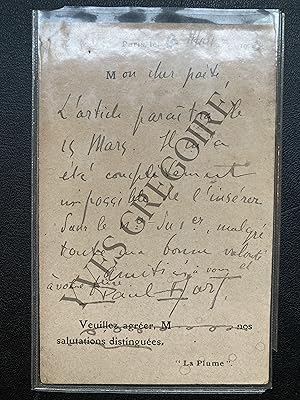 Paris, le
Mon cher poète,
L'article paraîtra le
15 Mars. Il m'a
été complètement
impossible de l'insérer
dans le n° du 1er, malgré
toute ma bonne volonté
amitiés à vous et
à votre
Paul
Veuillez agréer, M nos
salutations distinguées.
"La Plume".
YVES GREGOIRE